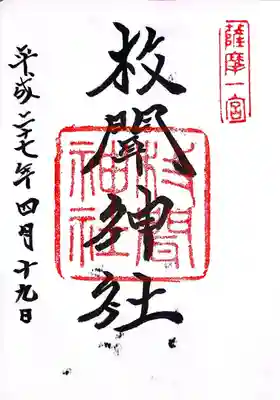 薩摩一宮
枚聞神社
枚聞神社
平成二十七年四月十九日